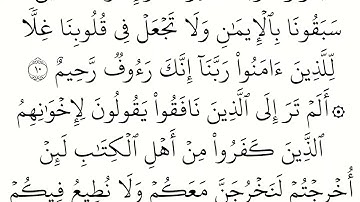 سَبَقُونَا بِٱلْإِيمَٰنِ وَلَا تَجْعَلْ فِى قُلُوبِنَا غِلًّا
لِّلَّذِينَ ءَامَنُوا۟ رَبَّنَآ إِنَّكَ رَءُوفٌ رَّحِيمٌ ١٠
۞ أَلَمْ تَرَ إِلَى ٱلَّذِينَ نَافَقُوا۟ يَقُولُونَ لِإِخْوَٰنِهِمُ
ٱلَّذِينَ كَفَرُوا۟ مِنْ أَهْلِ ٱلْكِتَٰبِ لَئِنْ
أُخْرِجْتُمْ لَنَخْرُجَنَّ مَعَكُمْ وَلَا نُطِيعُ فِيكُمْ